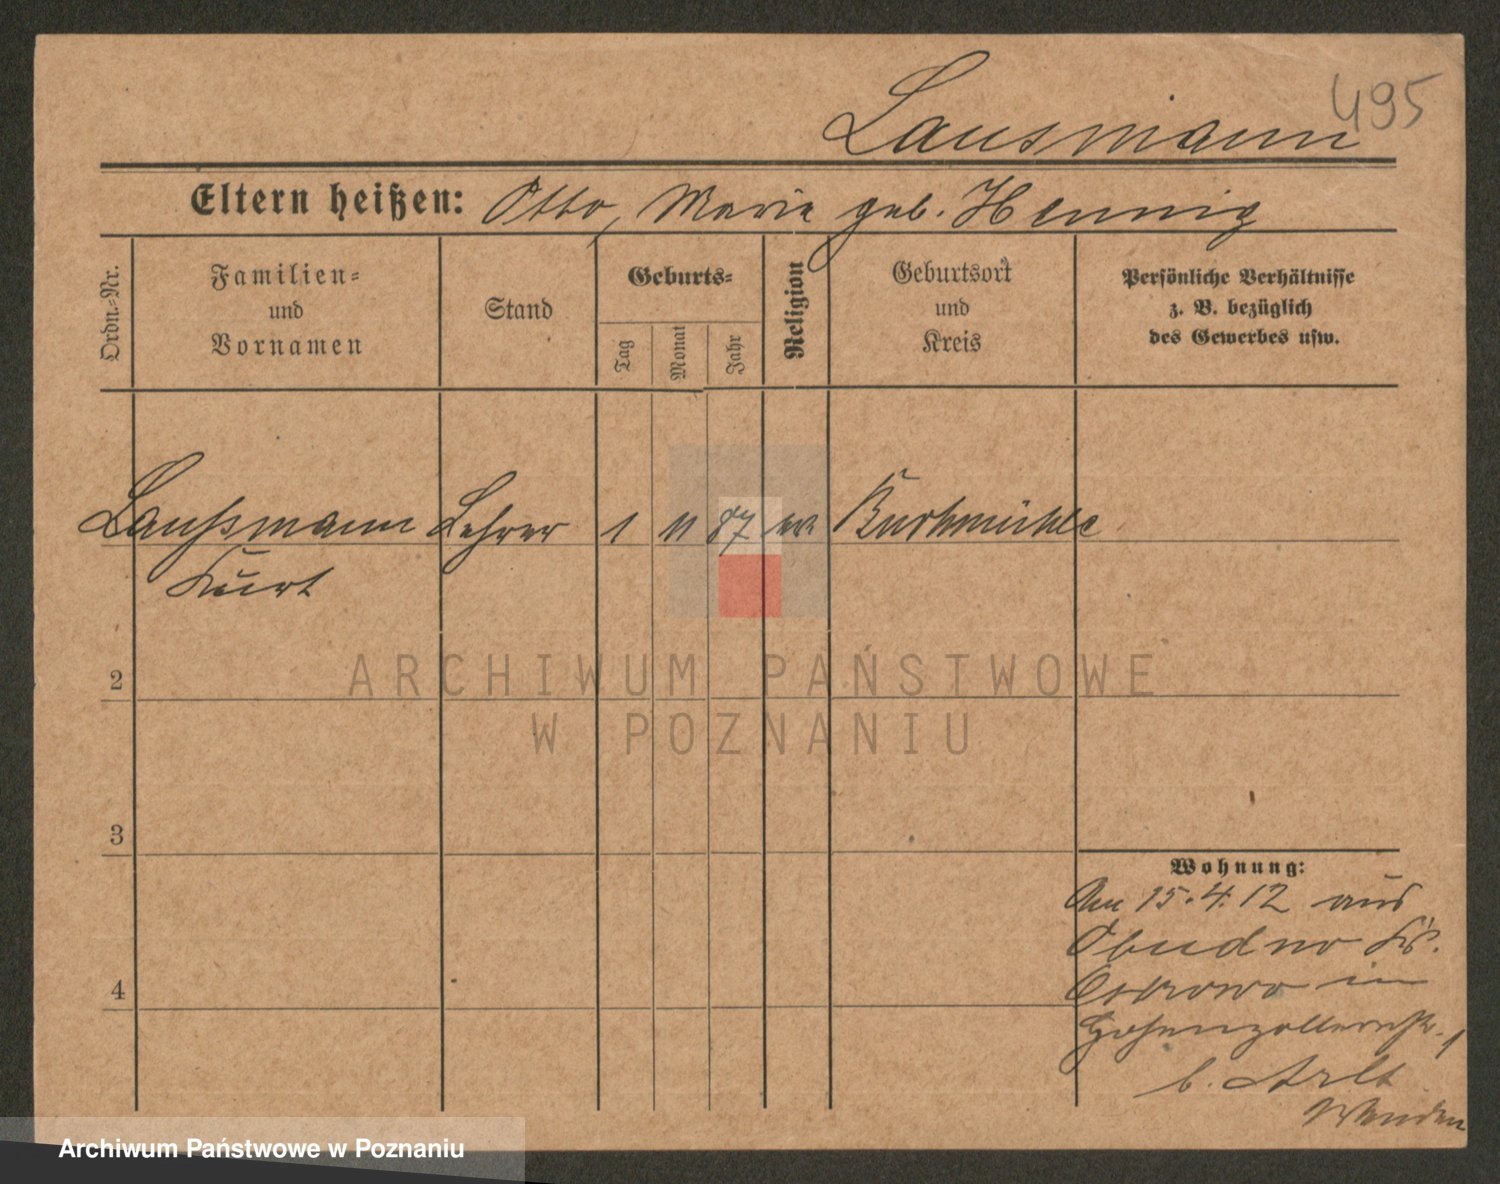 495
Lausmann
Eltern heißen: Otto, Marie geb. Hennig
Ordn.-Nr.
Familien-
und
Vornamen
Stand
Geburts-
Tag
Monat
Jahr
Religion
Geburtsort
und
Kreis
Persönliche Verhältnisse
z. B. bezüglich
des Gewerbes usw.
Laußmann Lehrer 1 11 87 ev
Kurt
2
3
4
Wohnung:
Am 15.4.12 aus
Kr.
Ostrowo in
Hohenzollernstr. 1
b. Arlt
Wenden
ARCHIWUM PAŃSTWOWE
W POZNANIU
Archiwum Państwowe w Poznaniu